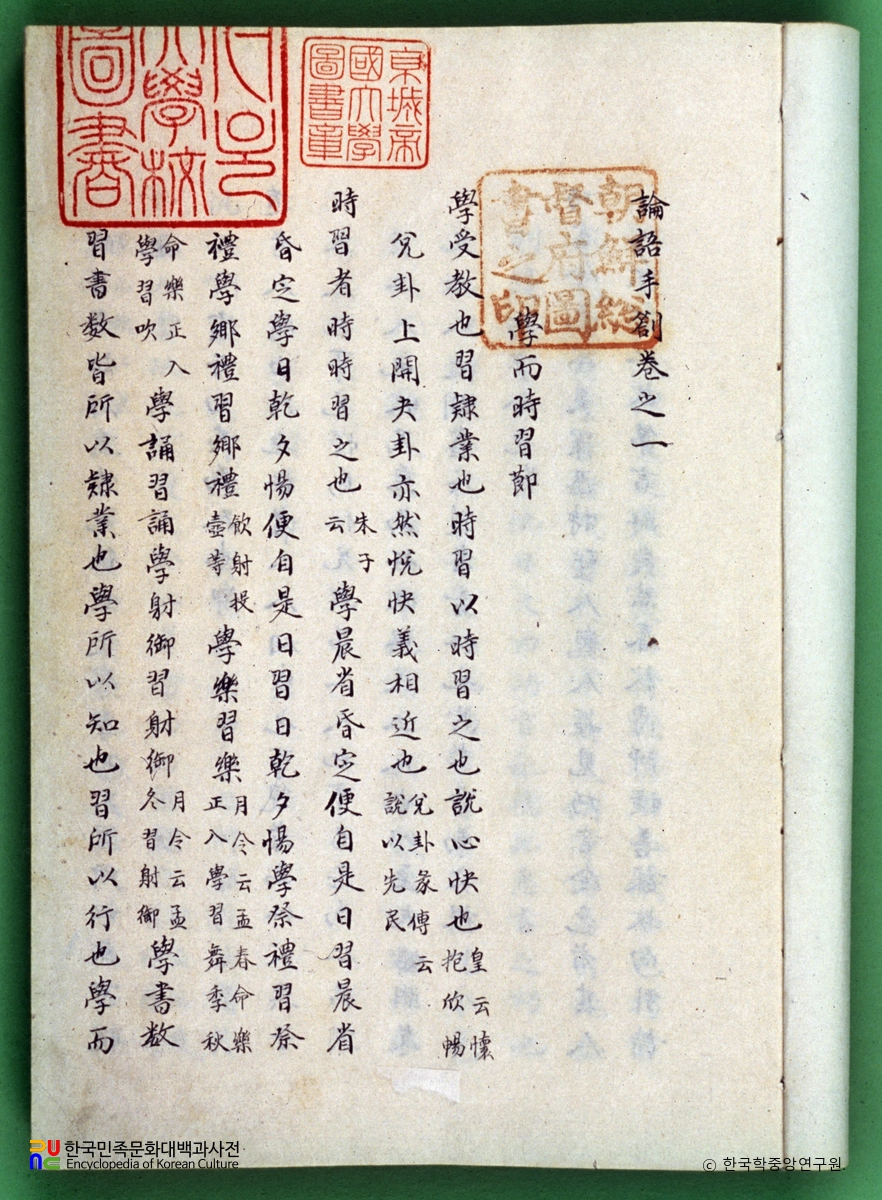 論語手劄卷之一
學而時習節
學受敎也習隸業也時習以時習之也說心快也皇云懷抱欣暢
兌卦上開夬卦亦然悅快義相近也兌卦彖傳云說以先民
時習者時時習之也朱子云學晨省昏定便自是日習晨省
昏定學日乾夕惕便自是日習日乾夕惕學祭禮習祭
禮學鄉禮習鄉禮飮射投壺等學樂習樂月令云孟春命樂正入學習舞季秋
命樂正入學習吹學誦習誦學射御習射御月令云孟冬習射御學書数
習書数皆所以隸業也學所以知也習所以行也學而
朝鮮總督府圖書之印
京城帝國大學圖書章
大學校圖書
한국민족문화대백과사전
Encyclopedia of Korean Culture
© 한국학중앙연구원